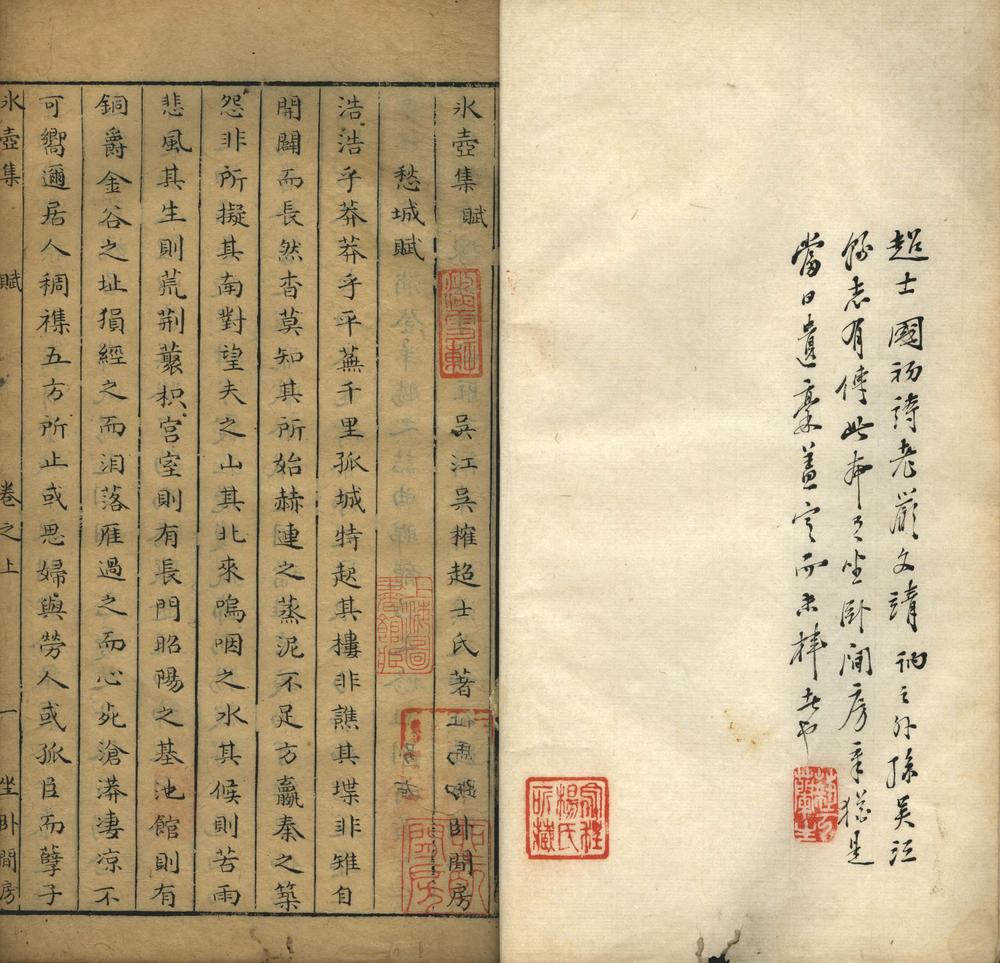 超士國初詩老嚴文靖訥之外孫吳江
志有傳此本乃坐卧閒房猶是
當日遺藁蓋定而未梓者也
楊氏所藏
氷壺集 賦 吳江吳㩁超士氏著 卧閒房
愁城賦
浩浩乎莽莽乎平蕪千里孤城特起其樓非譙其堞非雉自
開闢而長然杳莫知其所始赫連之蒸泥不足方嬴秦之築
怨非所擬其南對望夫之山其北來嗚咽之水其候則苦雨
悲風其生則荒荆蘘枳宮室則有長門昭陽之基池館則有
銅爵金谷之址猿經之而泪落雁過之而心死滄漭凄凉不
可嚮邇居人稠襍五方所止或思婦與勞人或孤臣而孽子
氷壺集 賦 卷之上 一 坐卧閒房
上海圖書館藏